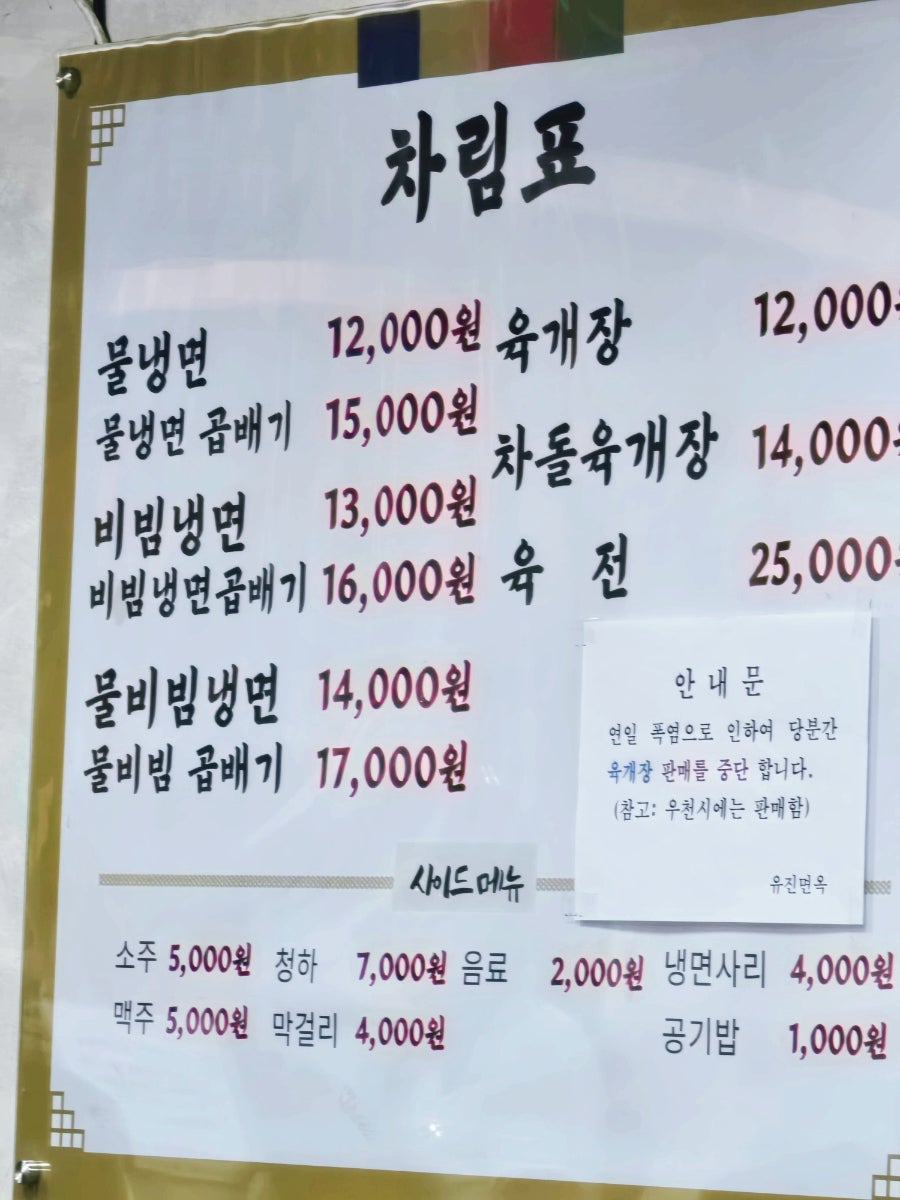 차림표
물냉면 12,000원
물냉면 곱배기 15,000원
비빔냉면 13,000원
비빔냉면곱배기 16,000원
물비빔냉면 14,000원
물비빔 곱배기 17,000원
육개장 12,000
차돌육개장 14,000
육 전 25,000
안내문
연일 폭염으로 인하여 당분간
육개장 판매를 중단 합니다.
(참고: 우천시에는 판매함)
유진면옥
사이드메뉴
소주 5,000원 청하 7,000원 음료 2,000원 냉면사리 4,000원
맥주 5,000원 막걸리 4,000원 공기밥 1,000원